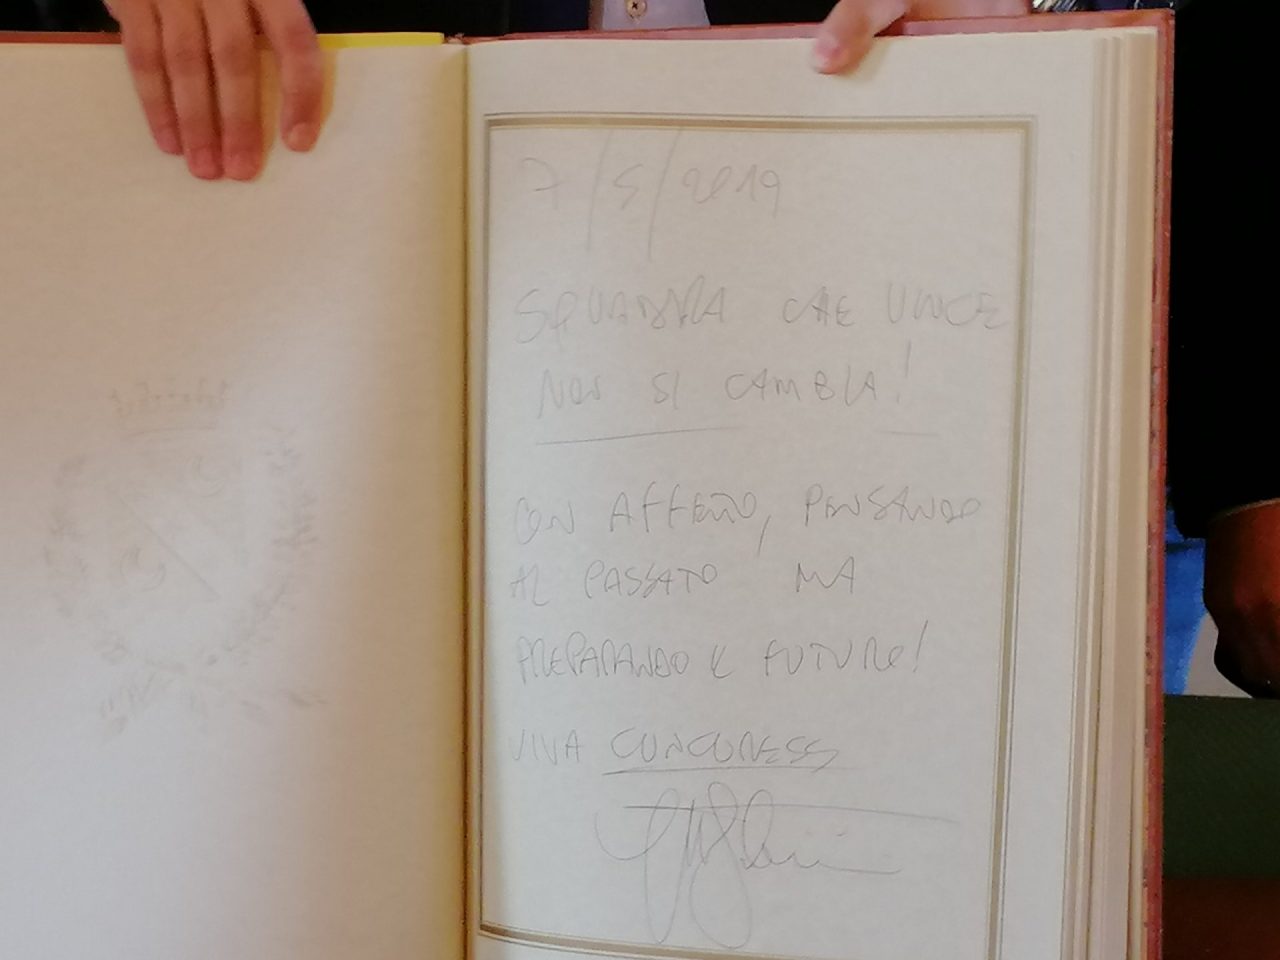 7/5/2019
SQUADRA CHE VINCE
NON SI CAMBIA!
CON AFFETTO, PENSANDO
AL PASSATO MA
PREPARANDO IL FUTURO!
VIVA